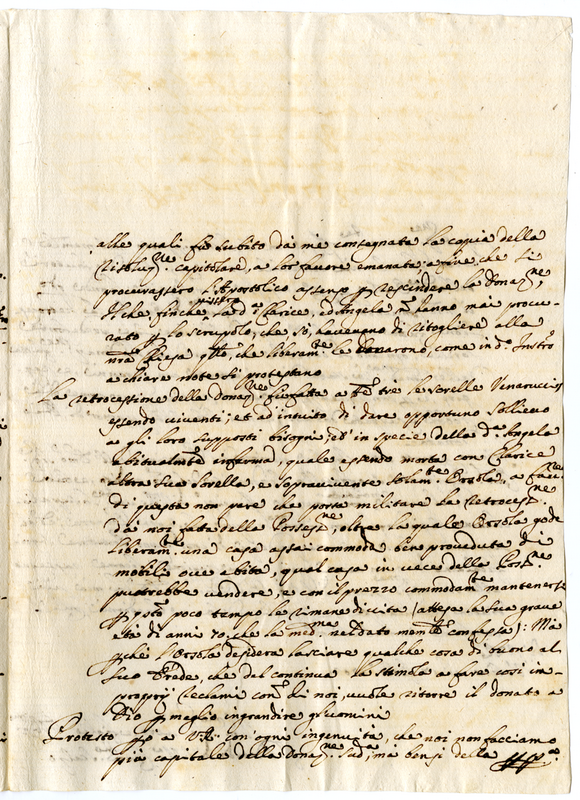 alle quali fù subito da me consegnata la copia della
risoluz.ne capitolare, a lor favore emanata, a fine, che si
procurassero l'Apostolico assenso p rescindere la Donaz.ne
Ilche, finche la d.a Clarice, ed Angela n hanno mai procu-
rato p lo scrupolo, che di ritogliere alla
nrã Chiesa qllo, che liberam.te le donarono, come in d.o Instro
a chiare note si protestano
La retrocessione della donaz.ne fù fatta a tt.e tre le sorelle Venaruccij
essendo viventi; et ad intuito di dare opportuno sollievo
a gli loro supposti bisogni, ed in specie della d.a Angela
abitualm.te inferma, quale essendo morta con Clarice
altra sua sorella, e sopravivente solam.te Orsola, a fav.e
di questa non pare che porti militare la retrocess.ne
da noi fatta della Possess.ne, oltre la quale Orsola gode
liberam.te una casa assai commoda ben proveduta di
mobili ove abita, qual casa in vece della Poss.ne
potrebbe vendere, e con il prezzo commodam.te mantenersi
p qsto poco tempo le rimane di vita (attesa la sua grave
età di anni 70, che la med.ma nel dato mem.le confessa): Mà
pche l'Orsola desidera lasciare qualche cosa di buono al
suo Erede, che dal continuo la stimola a fare così im-
proprij reclami con.a di noi, vuole ritorre il donato a
Dio p meglio ingrandire gl'uomini
Protesto pò a V.R. con ogni ingenuità, che noi non facciamo
più capitale della Donaz.ne sud.a, mà bensì della